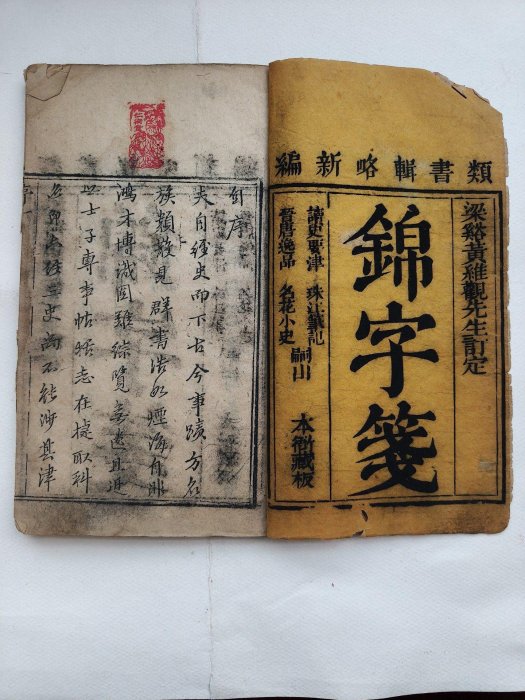 類書輯略新編
梁谿黃維觀先生訂定
錦字箋
讀史要津 珠江
晉唐逸品 名花小史
嗣出
本衙藏板
序
夫自經史而下古今事蹟方名
族類散見群書浩如煙海自非
鴻才博識罔難綜覽
士子專事帖括志在捷取科
名 三史尚不能涉其津